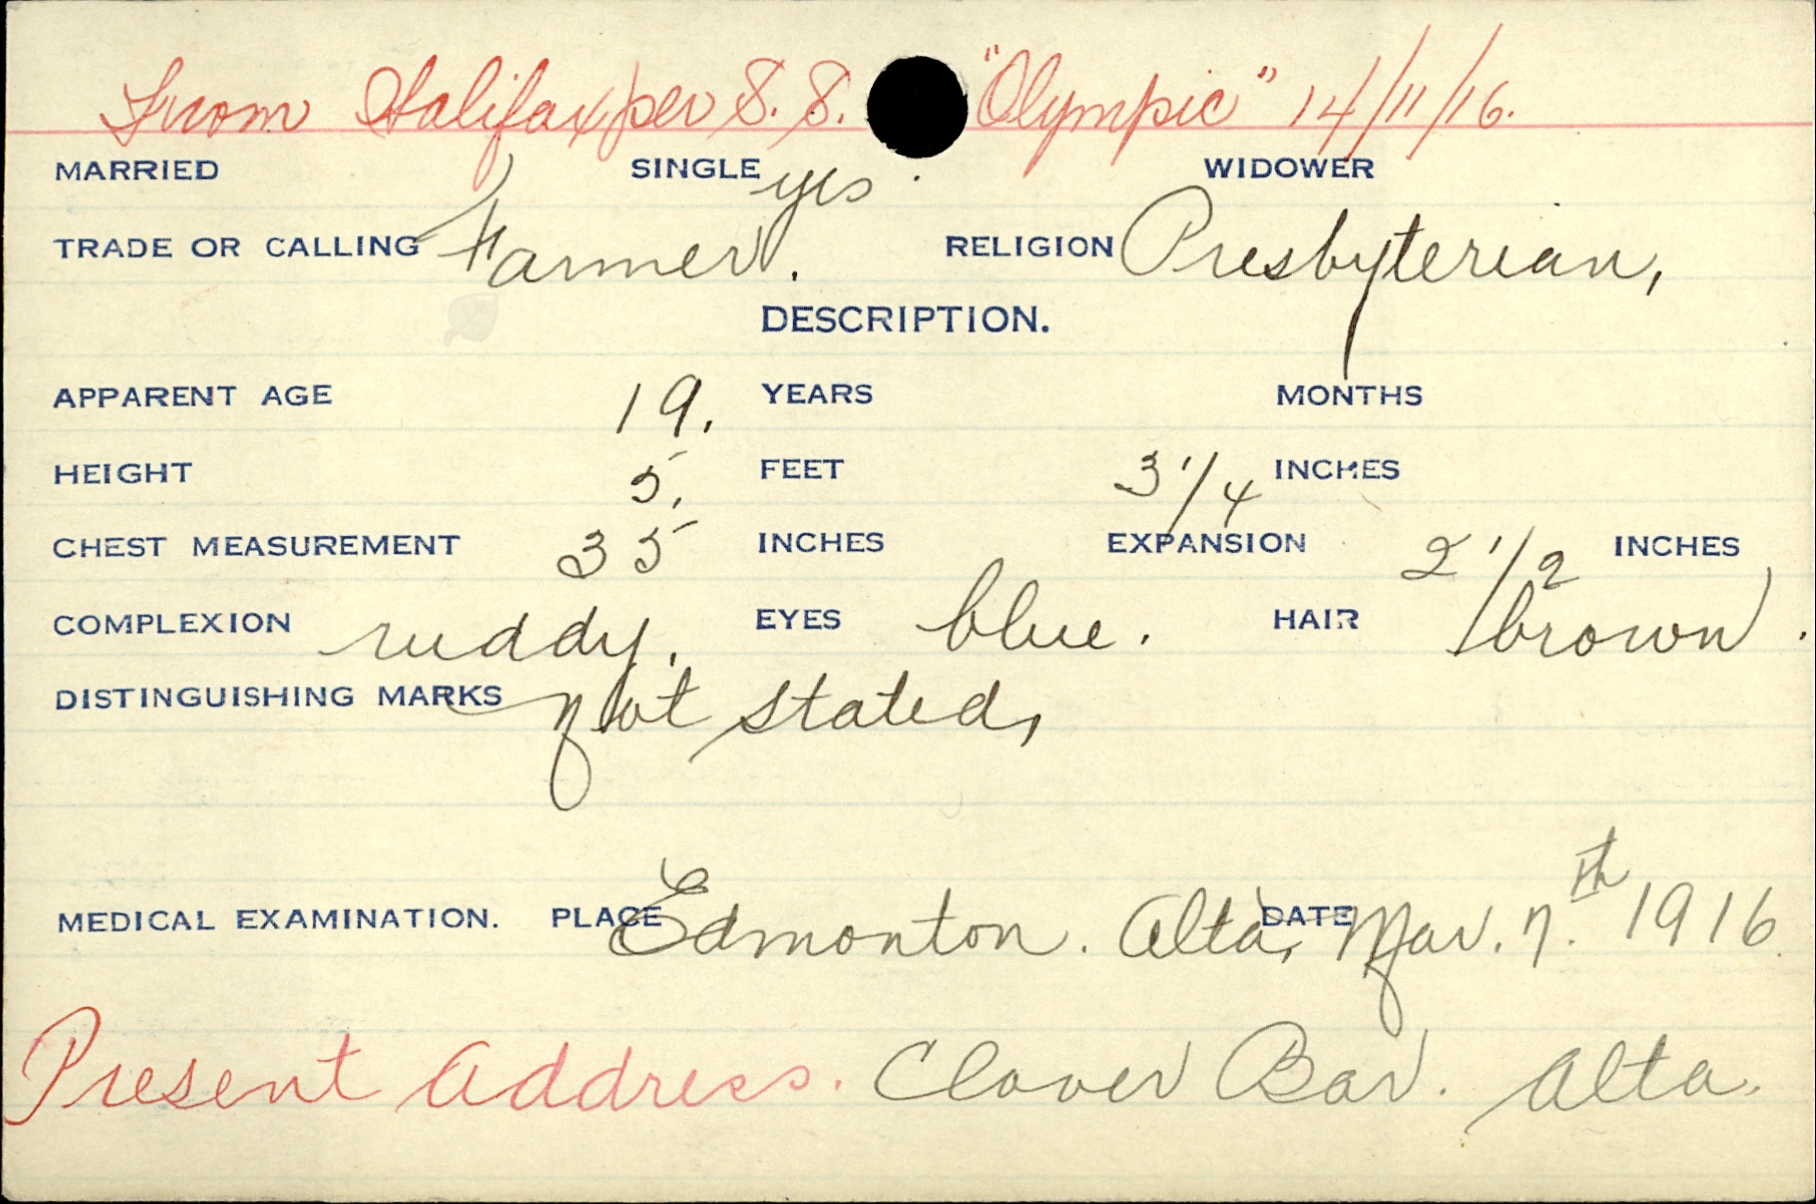 From Halifax per S.S. "Olympic" 14/11/16.
MARRIED SINGLE yes. WIDOWER
TRADE OR CALLING Farmer. RELIGION Presbyterian,
DESCRIPTION.
APPARENT AGE 19. YEARS MONTHS
HEIGHT 5. FEET 3 1/4 INCHES
CHEST MEASUREMENT 35 INCHES EXPANSION 2 1/2 INCHES
COMPLEXION ruddy. EYES blue. HAIR brown.
DISTINGUISHING MARKS Not stated,
MEDICAL EXAMINATION. PLACE Edmonton. Alta, DATE Mar. 7th 1916
Present Address. Clover Bar. Alta.